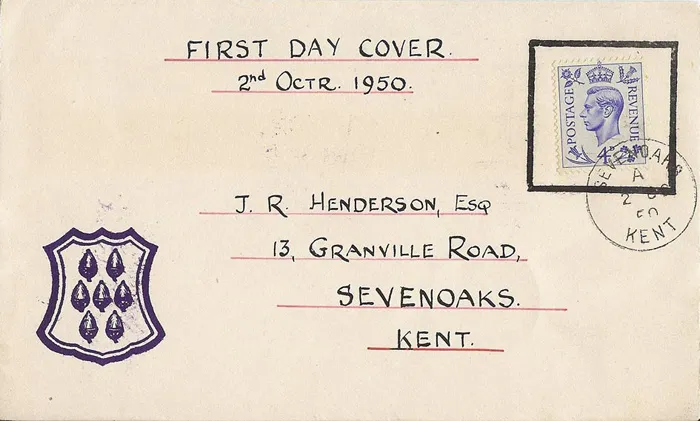 FIRST DAY COVER.
2nd OCTR. 1950.
POSTAGE
REVENUE
4D
SEVENOAKS
A
2 OC
50
KENT
J. R. HENDERSON, ESQ
13, GRANVILLE ROAD,
SEVENOAKS.
KENT.